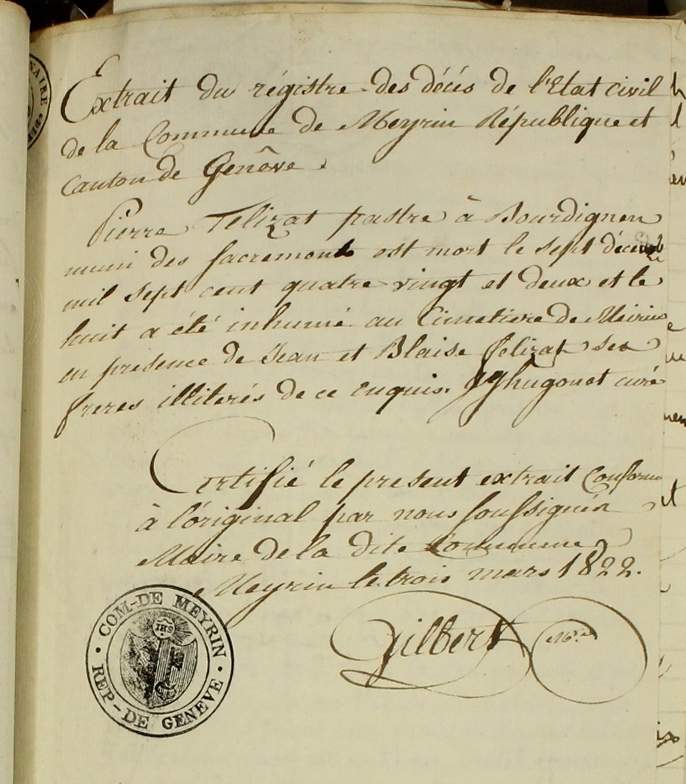 Extrait du régistre des décés de l'Etat civil
de la Commune de Meyrin République et
Canton de Genêve.
Pierre Felizat pastre à Bourdignen
muni des sacremens est mort le sept décemb
mil sept cent quatre vingt et deux et le
huit a été inhumé au Cimetiere de Meirin
en présence de Jean et Blaise felizat ses
freres illiterés de ce enquis. hugonet curé
Certifié le present extrait Conforme
à l'original par nous soussigné
Maire de la dite Commune
Meyrin le trois mars 1822.
Gilbert
COM-DE MEYRIN
IHS
REP-DE GENEVE